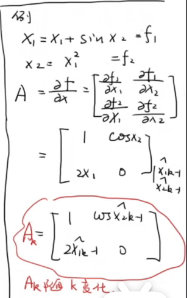 例
x₁ = x₁ + sin x₂ = f₁
x₂ = x₁² = f₂
A = ∂f/∂x = [∂f₁/∂x₁ ∂f₁/∂x₂
∂f₂/∂x₁ ∂f₂/∂x₂]
= [1 cosx₂
2x₁ 0] | x̂₁ₖ₋₁
x̂₂ₖ₋₁
Aₖ = [1 cos x̂₂ₖ₋₁
2x̂₁ₖ₋₁ 0]
Aₖ 随 k 变化